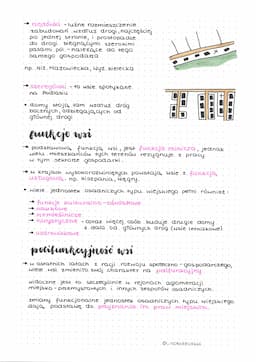 → rzędówki - luźne rozmieszczenie
zabudowań wzdłuż drogi, najczęściej
po jednej stronie, i prowadzące
do drogi biegnącymi szerokimi
pasami pól - należące do tego
samego gospodarza
np. Niz. Mazowiecka, Wyż. Lubelska
→ szeregówki - to wsie spotykane
na Podlasiu
• domy stoją tam wzdłuż dróg
bocznych, odbiegających od
głównej drogi
funkcje wsi
→ podstawową funkcją wsi, jest funkcja rolnicza, jednak
wielu mieszkańców tych terenów rezygnuje z pracy
w tym sektorze gospodarki.
→ w krajach wysokorozwiniętych powstają wsie z funkcją
usługową, np. Hiszpania, Węgry.
→ wiele jednostek osadniczych typu wiejskiego pełni również:
• funkcje
• naukowe
• rzemieślnicze
• turystyczne - coraz więcej osób buduje drugie domy
z dala od głównych dróg (wsie letniskowe)
• uzdrowiskowe
polifunkcyjność wsi
→ w ostatnich latach z racji rozwoju społeczno-gospodarczego,
wiele wsi zmieniło swój charakter na polifunkcyjny
widoczne jest to szczególnie w rejonach aglomeracji
miejsko-przemysłowych i innych zespołów osadniczych.
zmiany funkcjonalne jednostek osadniczych typu wiejskiego
dają podstawę do przyznania im praw miejskich.